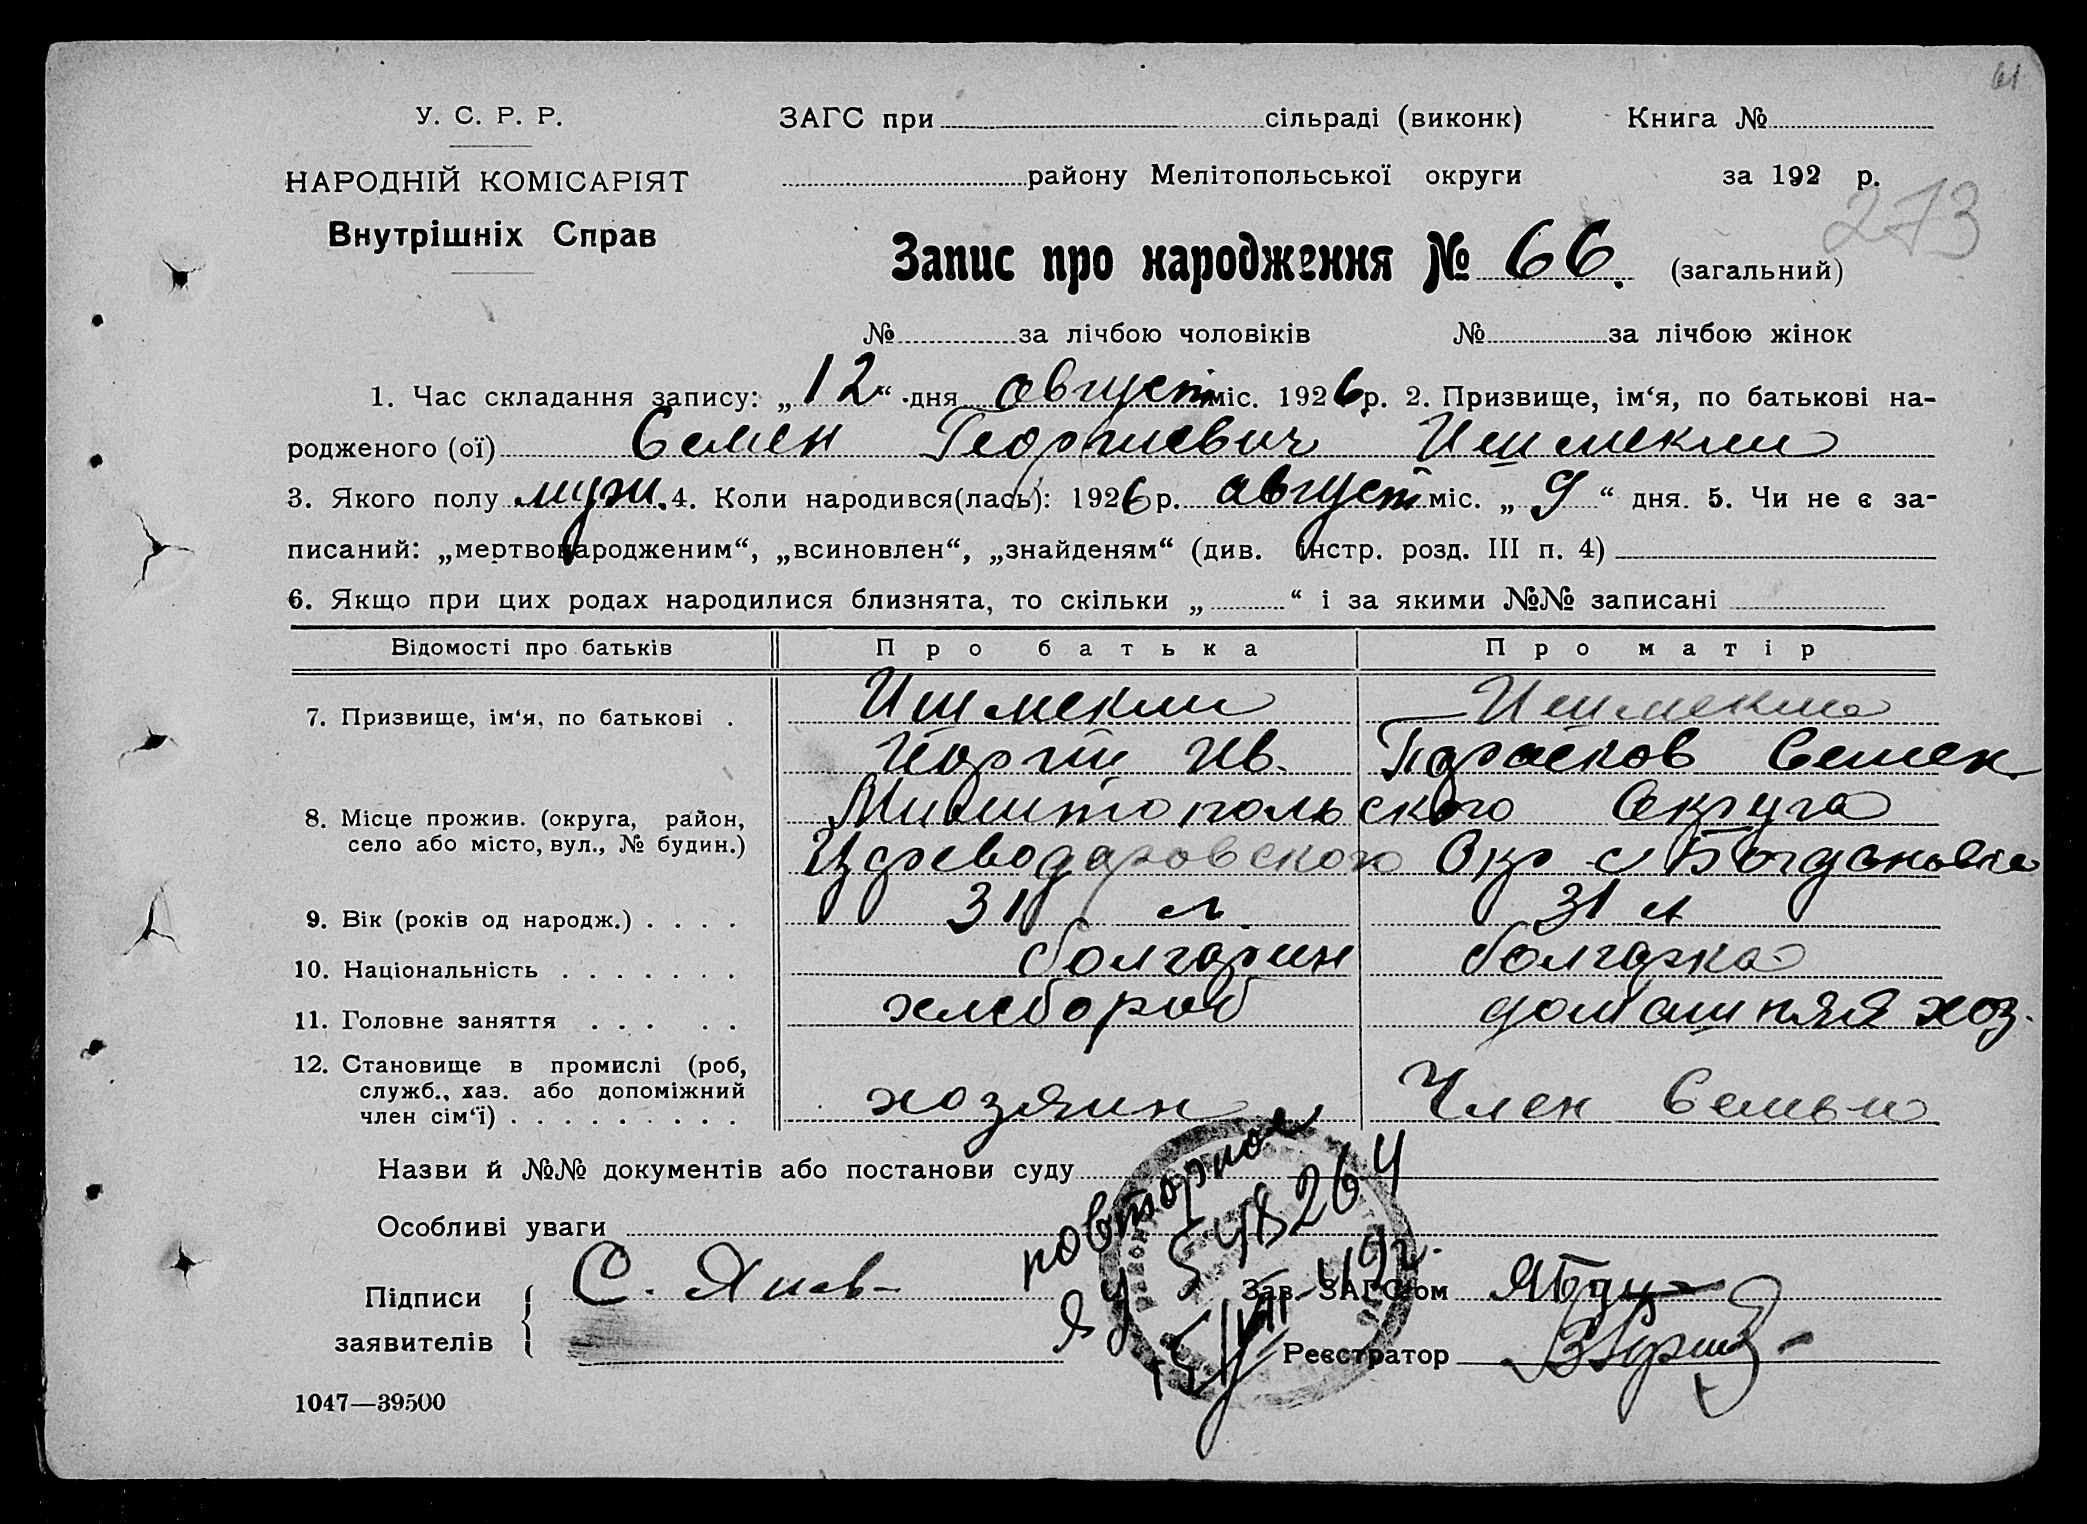 61
У. С. Р. Р.
НАРОДНІЙ КОМІСАРІЯТ
Внутрішніх Справ
ЗАГС при сільраді (виконк) Книга №
району Мелітопольської округи за 192 р.
273
Запис про народження № 66. (загальний)
№ за лічбою чоловіків № за лічбою жінок
1. Час складання запису: „12“ дня август міс. 1926 р. 2. Призвище, ім‘я, по батькові на-
родженого (ої) Семен Георгиевич Ишмекли
3. Якого полу муж. 4. Коли народився(лась): 1926 р. август міс. „9“ дня. 5. Чи не є за-
писаний: „мертвонародженим“, „всиновлен“, „знайденям“ (див. інстр. розд. III п. 4)
6. Якщо при цих родах народилися близнята, то скільки „ “ і за якими №№ записані
Відомості про батьків Про батька Про матір
7. Призвище, ім‘я, по батькові . Ишмекли Ишмекли
Ив. Парасков Семен.
8. Місце прожив. (округа, район, село або місто, вул., № будин.) Милитопольского Округа
Цареводаровского с Богдановка
9. Вік (років од народж.) . . . . 31 л 31 л
10. Національність . . . . . . . болгарин болгарка
11. Головне заняття . . . . . хлебороб домашняя хоз.
12. Становище в промислі (роб, служб., хаз. або допоміжний член сім‘ї) . . . . . . . . . хозяин Член Семьи
Назви й №№ документів або постанови суду
Особливі уваги
повторное
ЯУ 548264
49г.
Підписи заявителів С. Янев
Зав. ЗАГС‘ом
Реєстратор
1047—39500